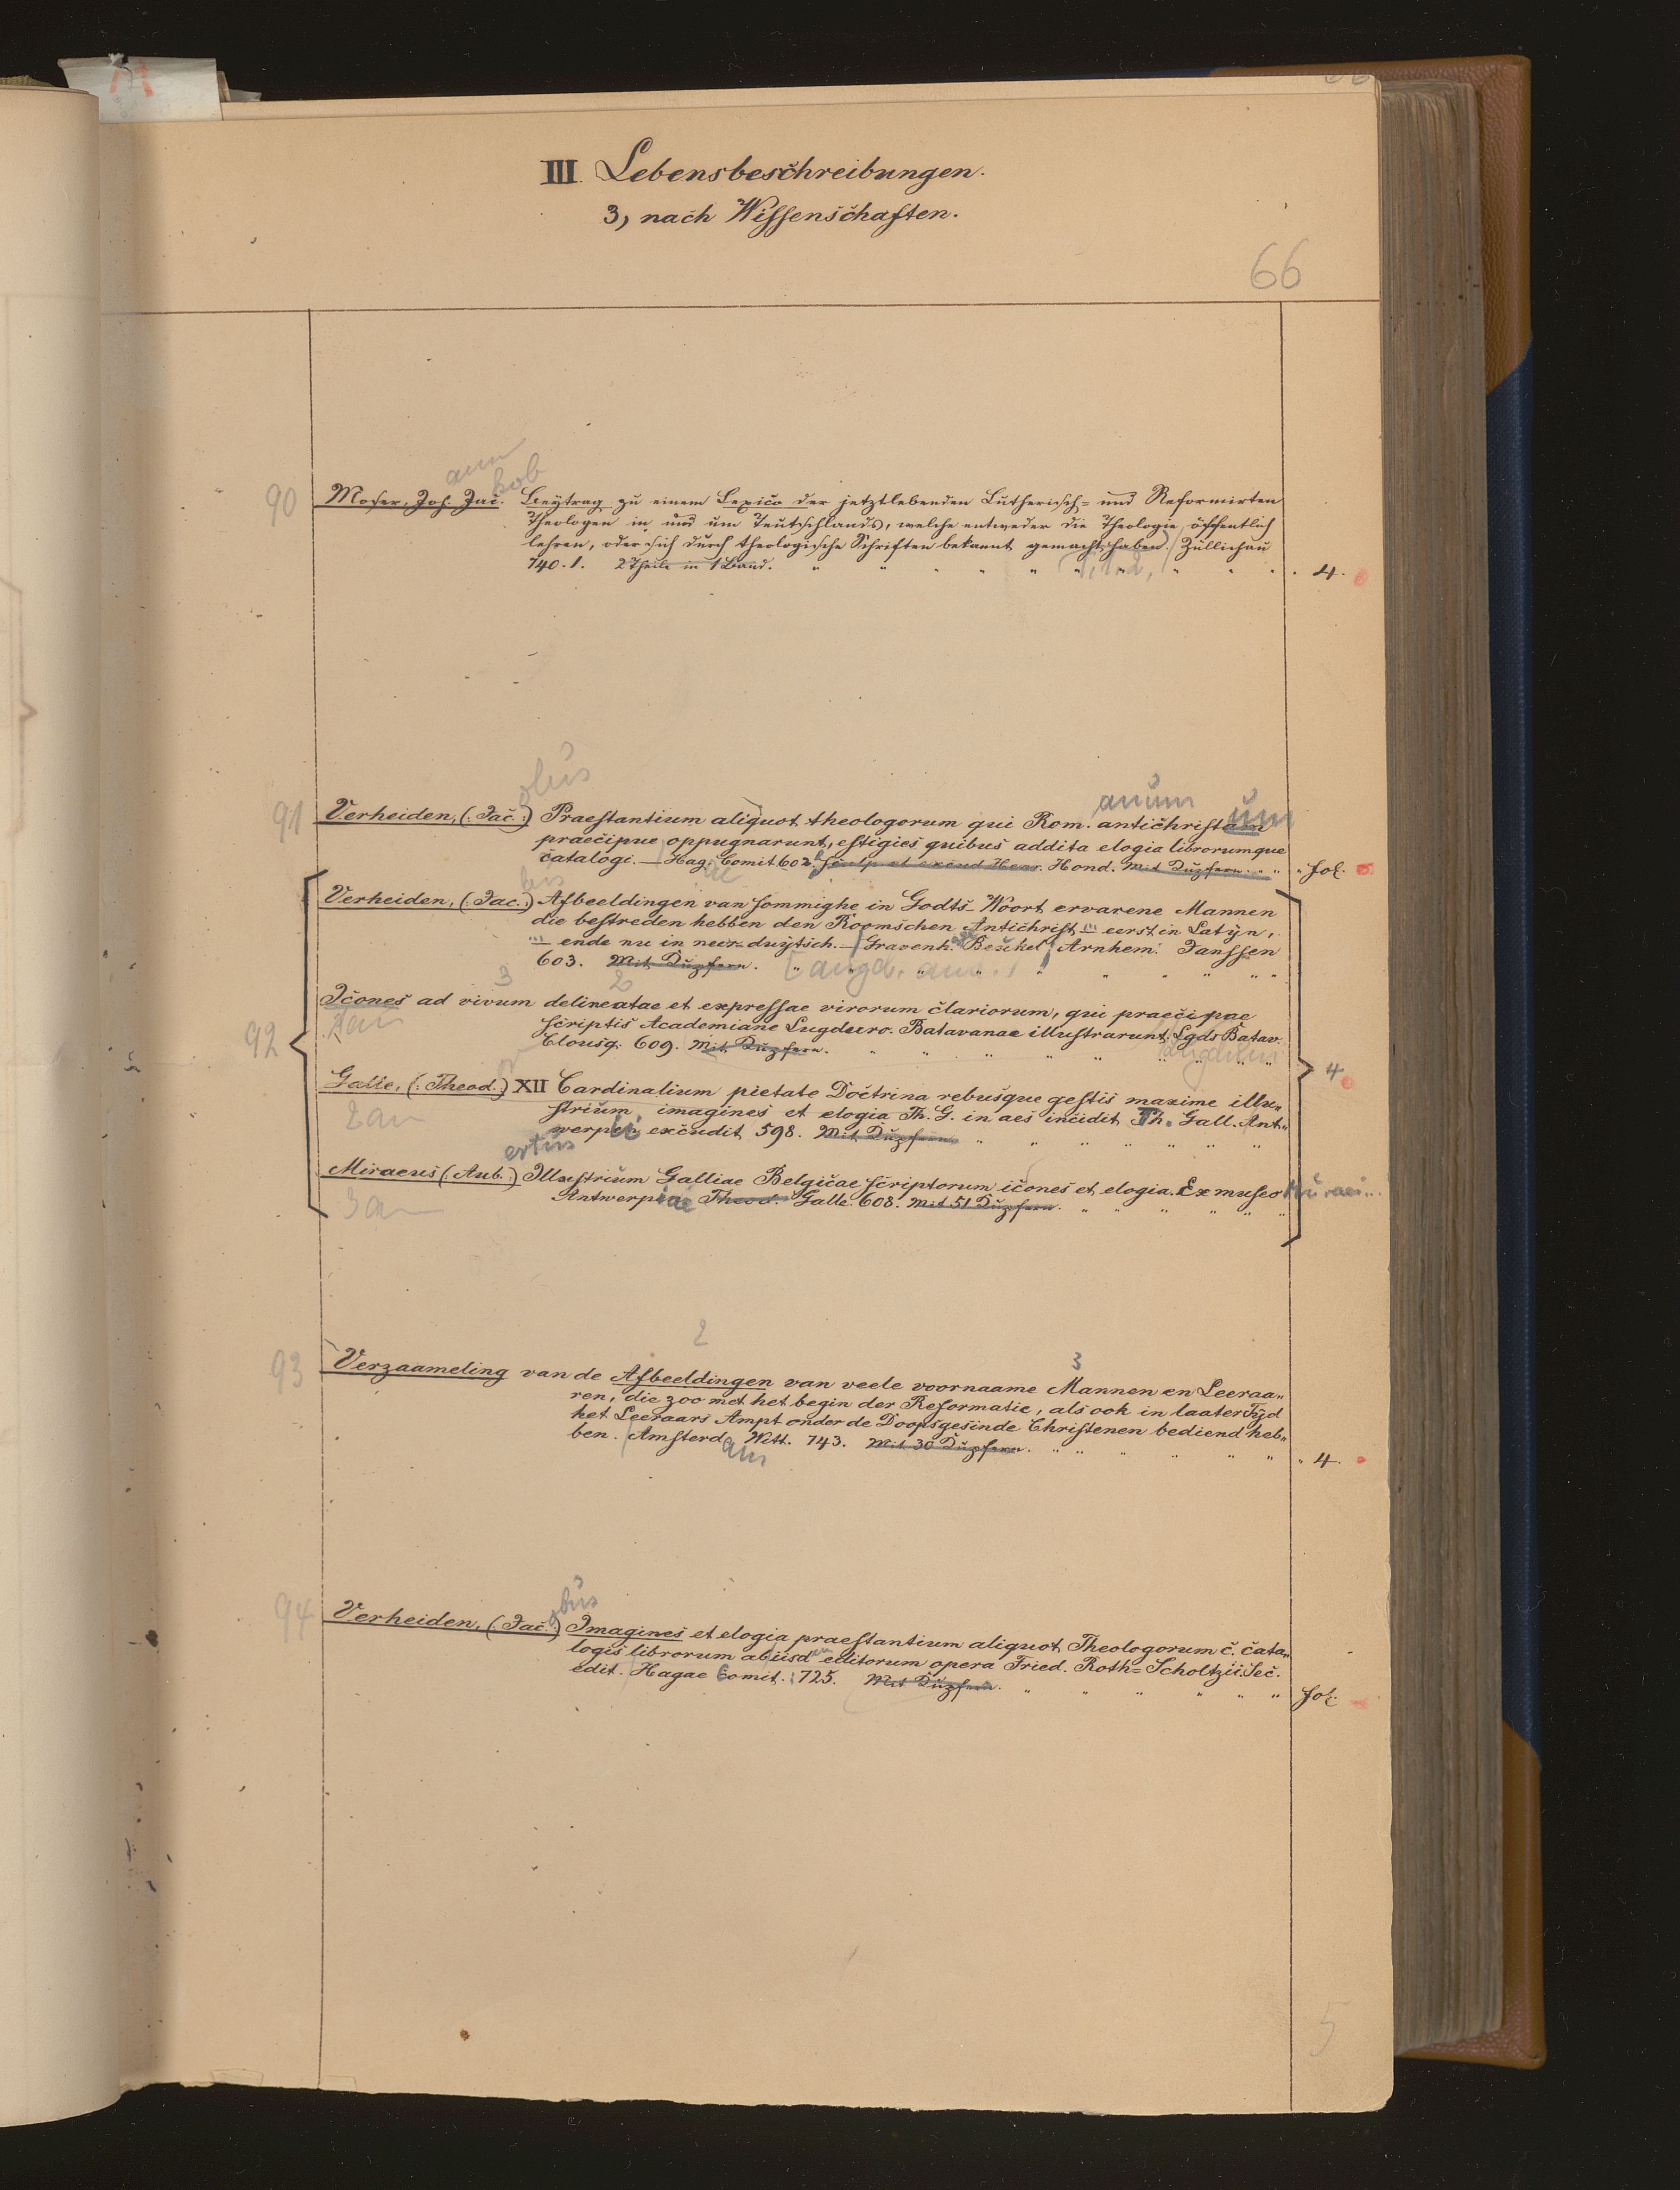 III. Lebensbeschreibungen.
3, nach Wissenschaften.
66
ann kob
90 Moser, Joh. Jac. Beÿtrag zu einem Lexico der jetztlebenden Lutherisch= und Reformirten
Theologen in und um Teutschlands, welche entweder die Theologie öffentlich
lehren, oder sich durch theologische Schriften bekannt gemacht haben. Züllichau
740.1. 2 Theile in 1 Band. 4.
obus
anum um
91 Verheiden, (: Jac. :) Praestantium aliquot theologorum qui Rom. antichristam
praecipue oppugnarunt, effigies quibus addita elogia librorumque
catalogi. — Hag. Comit. 602. sculp et excud Henr. Hond. Mit Kupfern. fol.
92
Verheiden, (: Jac. :) Afbeeldingen van sommighe in Godts-Woort ervarene Mannen
die bestreden hebben den Roomschen Antichrist — eerst in Latÿn,
— ende nu in neer-duÿtsch. — Gravenh. Beukel Arnhem. Janssen
603. Mit Kupfern.
3 2
Icones ad vivum delineatae et expressae virorum clariorum, qui praecipae
scriptis Academiane Lugduro. Batavanae illustrarunt. Lgds Batav.
Clousq. 609. Mit Kupfern.
4
Galle, (: Theod. :) XII Cardinalium pietate Doctrina rebusque gestis maxime illu„
2 an
strium imagines et elogia Th. G. in aes incidit Th. Gall. Ant„
werpen excudit 598. Mit Kupfern.
ertus
Miraeus (: Aub. :) Illustrium Galliae Belgicae scriptorum icones et elogia. Ex museo
3 an
Antwerpiae Theod. Galle. 608. Mit 51 Kupfern.
2
3
93 Verzaameling van de Afbeeldingen van veele voornaame Mannen en Leeraa„
ren, die zoo met het begin der Reformatie, als ook in laater Tÿd
het Leeraars Ampt onder de Doopsgesinde Christenen bediend heb„
ben. Amsterd. Wett. 743. Mit 30 Kupfern. 4.
am
obus
94 Verheiden, (: Jac. :) Imagines et elogia praestantium aliquot Theologorum c. cata„
logis librorum abiisd editorum opera Fried. Roth=Scholtzii. Sec.
edit. Hagae Comit. 725. Mit Kupfern. fol.
5